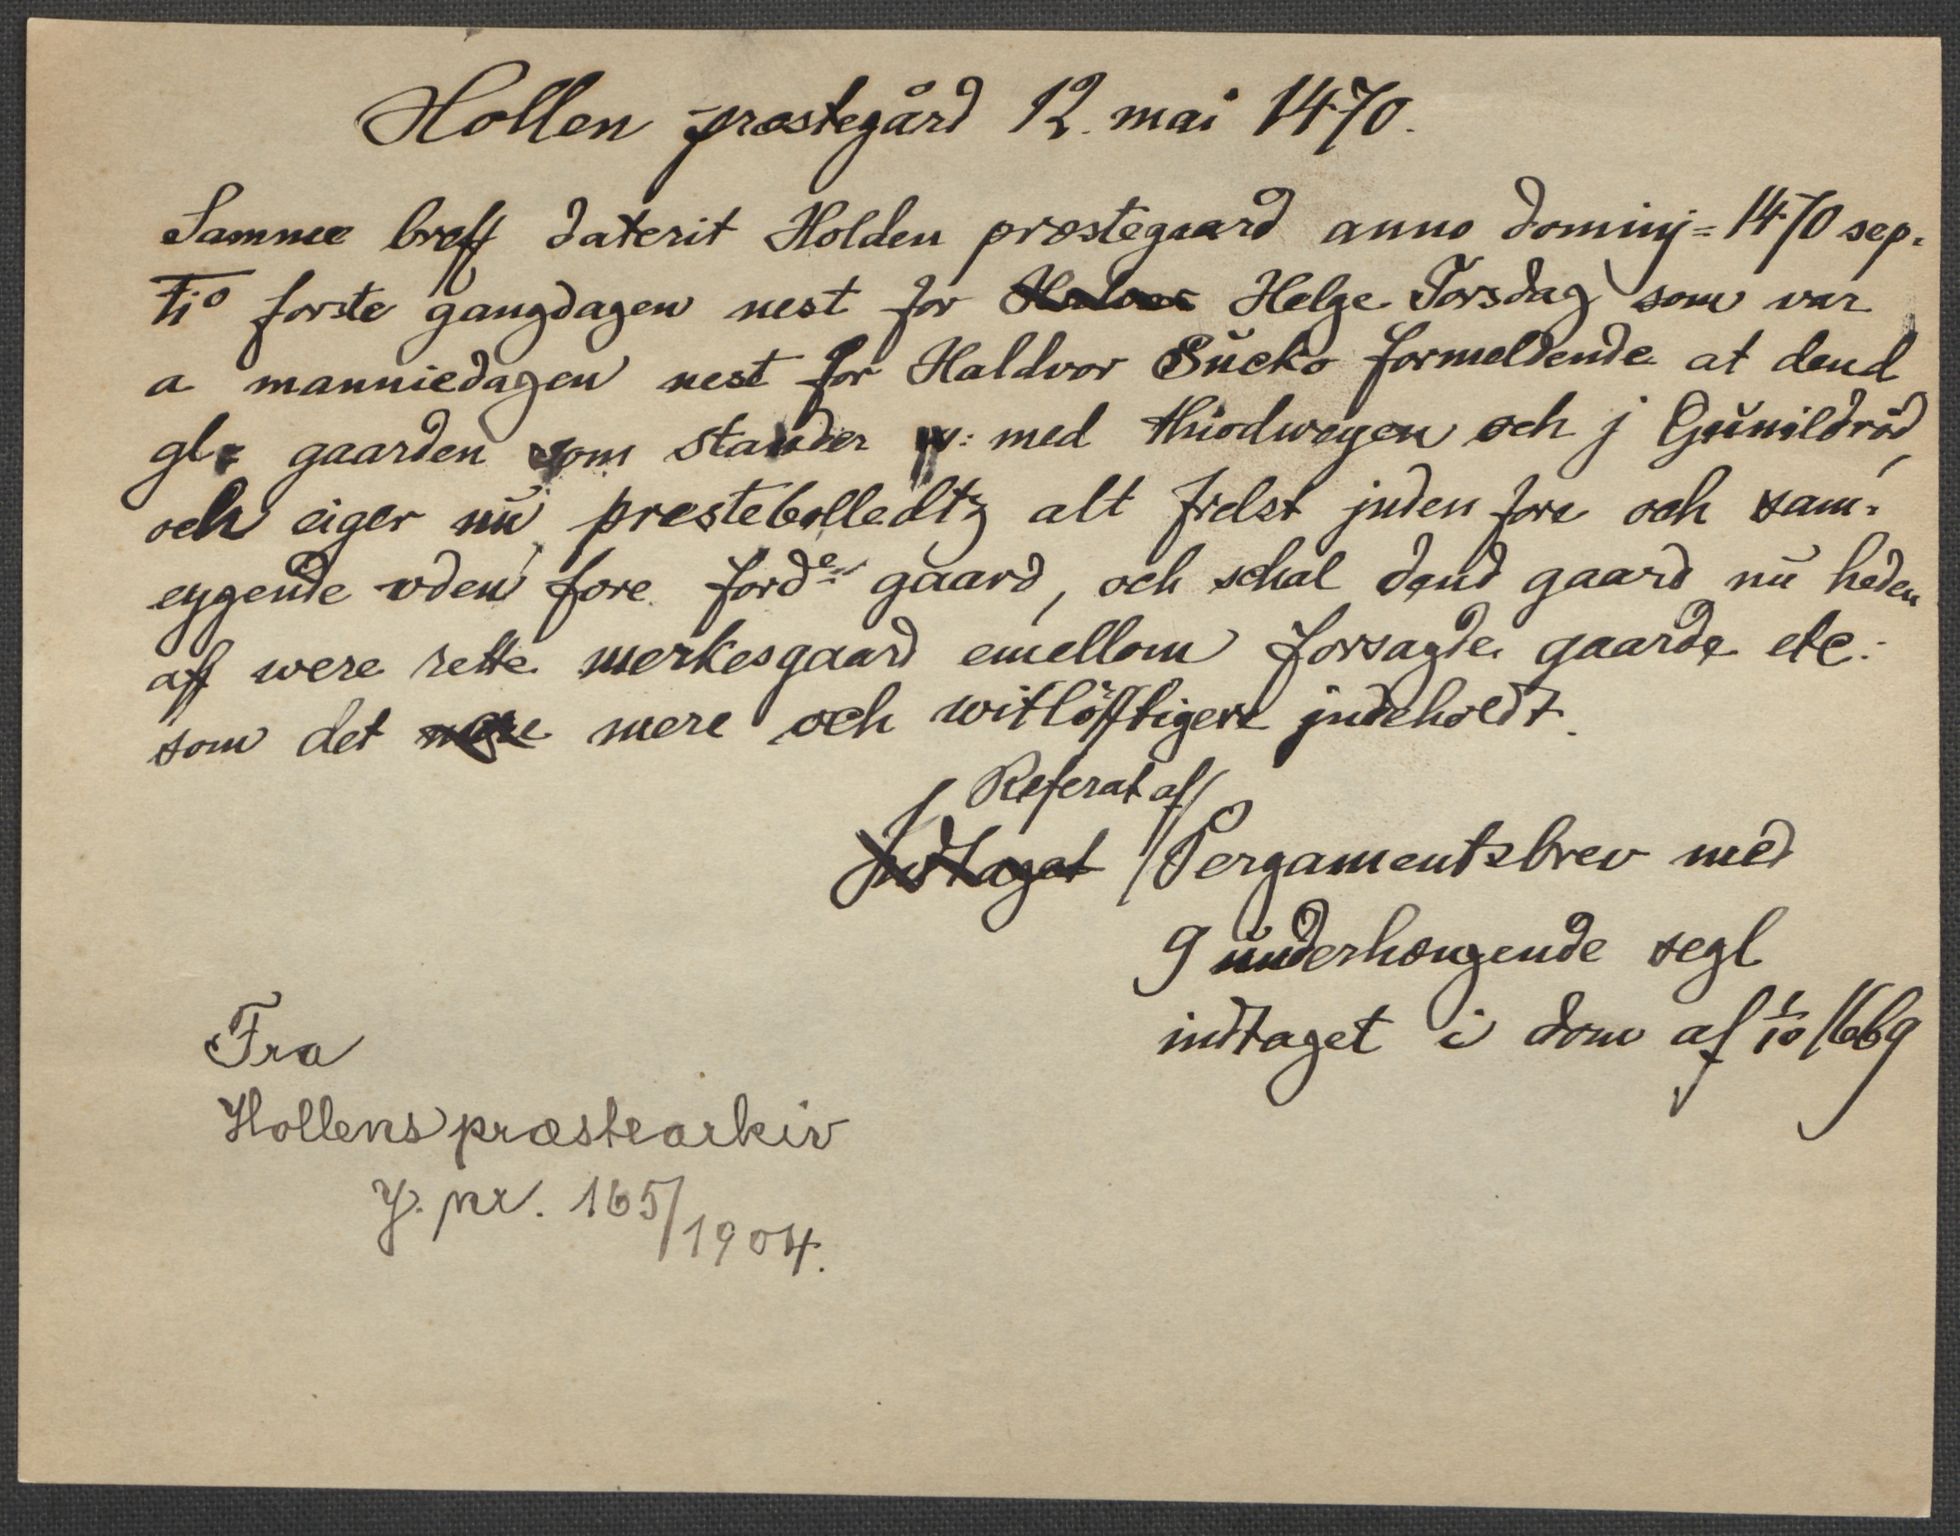 Hollen præstegård 12. mai 1470.
Samme breff daterit Holden præstegaard anno dominj = 1470 sep.
tio første gangdagen nest for Helge Torsdag som var
a manniedagen nest for Haldvor Sucko formeldende at dend
gl: gaarden som stander med thiodweyen och j Gunildrød,
och eiger nu prestebolledtz alt frelst juden fore och sam-
eygende vden fore forde gaard, och schal dend gaard nu heden
aff were rette merkesgaard emellom forsagde gaarde etc.
som det mere och witløfftigere judeholdt.
Referat af
Indtaget Pergamentsbrev med
9 underhængende segl
indtaget i dom af 1/10 1669
Fra
Hollens præstearkiv
J. nr. 165/1904.